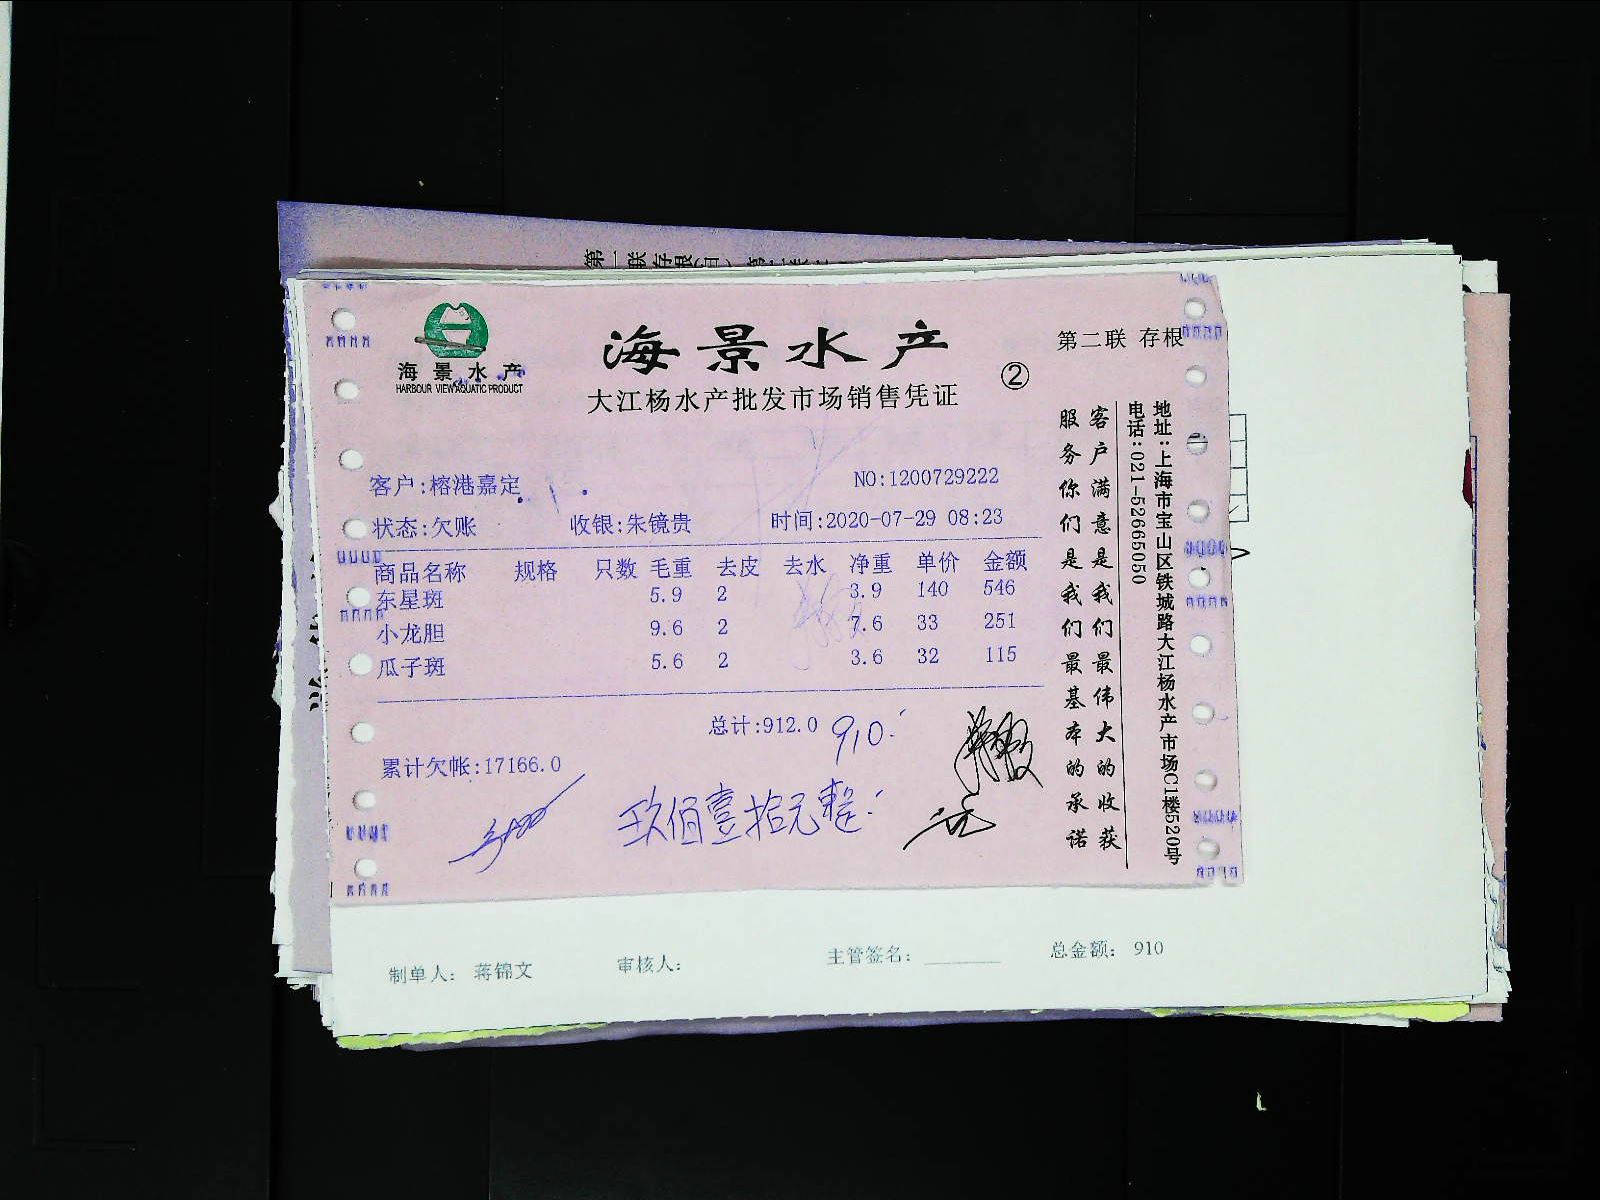 海景水产
HARBOUR VIEW AQUATIC PRODUCT
海景水产
大江杨水产批发市场销售凭证
②
第二联 存根
客户:榕港嘉定
NO:1200729222
状态:欠账 收银:朱镜贵 时间:2020-07-29 08:23
商品名称 规格 只数 毛重 去皮 去水 净重 单价 金额
东星斑 5.9 2 3.9 140 546
小龙胆 9.6 2 7.6 33 251
瓜子斑 5.6 2 3.6 32 115
总计:912.0 910.
累计欠帐:17166.0
玖佰壹拾元整
客户满意是我们最伟大的收获
服务你们是我们最基本的承诺
地址:上海市宝山区铁城路大江杨水产市场C1楼520号
电话:021-52665050
制单人: 蒋锦文 审核人: 主管签名: 总金额: 910